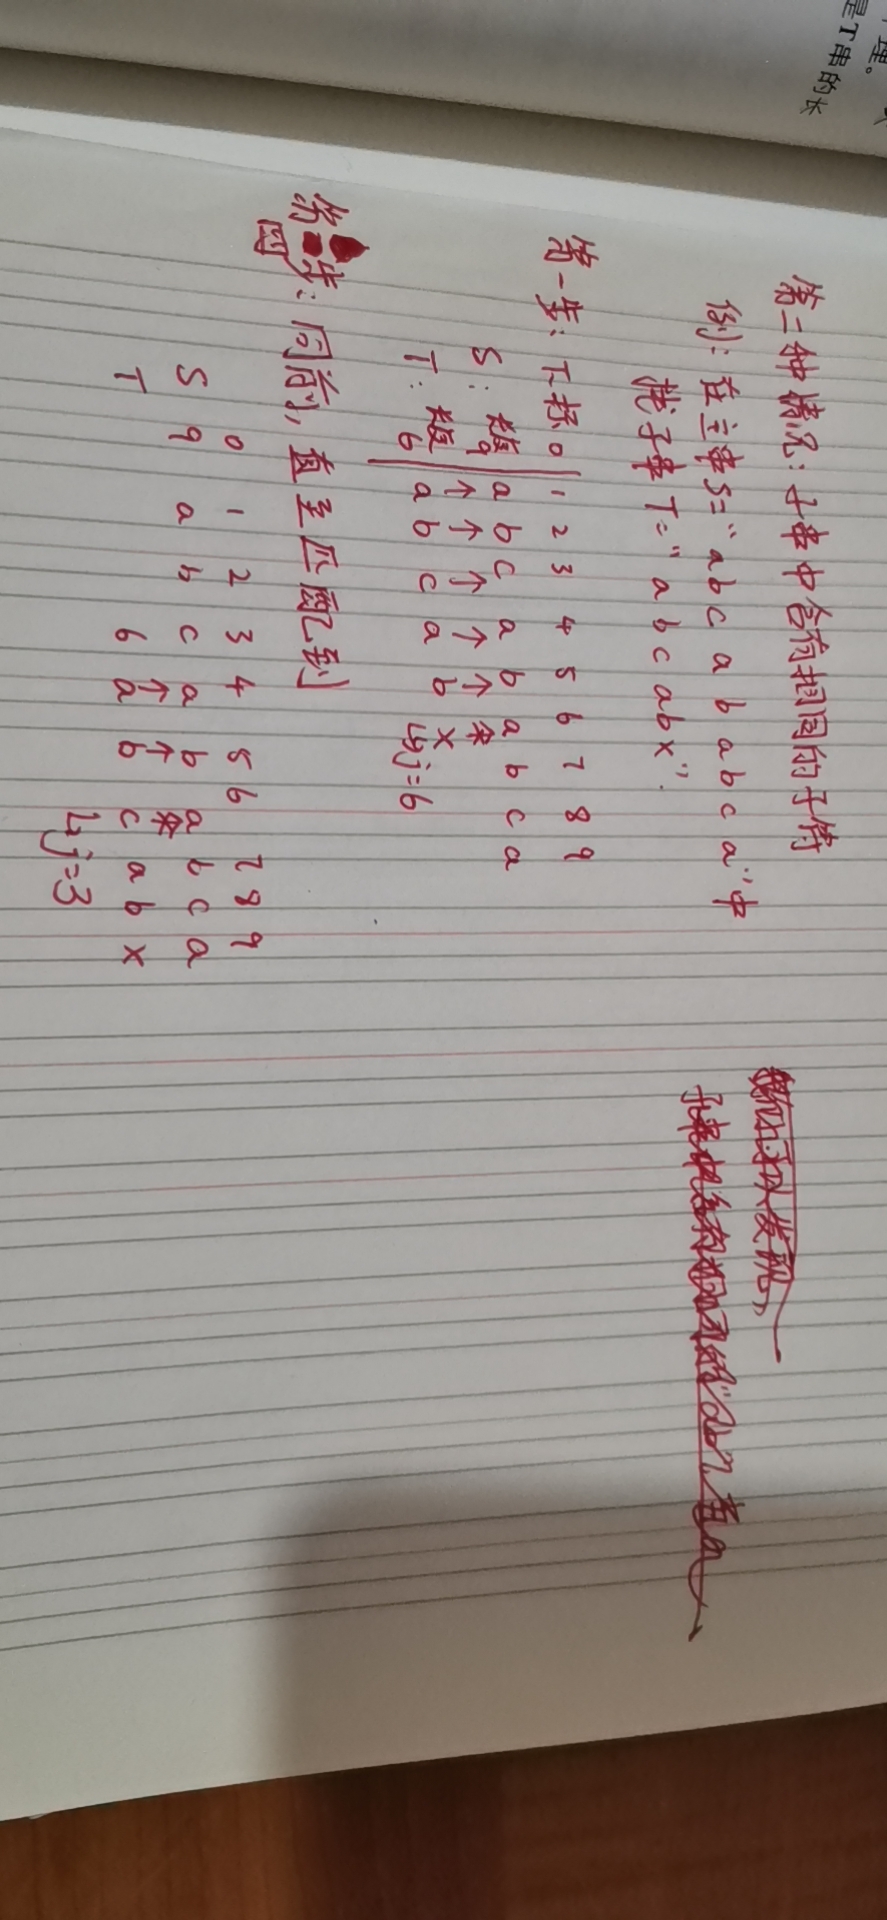 理。
是T串的长
第二种情况：子串中含有相同的子符
例：在主串S="abc a b a b c a"中
找子串T="a b c a b x".
第一步：下标 0 1 2 3 4 5 6 7 8 9
S: 9 a b c a b a b c a
T: 6 a b c a b x
↳j=6
第四步：同前，直至匹配到
0 1 2 3 4 5 6 7 8 9
S 9 a b c a b a b c a
↑ ↑
T 6 a b c a b x
↳j=3